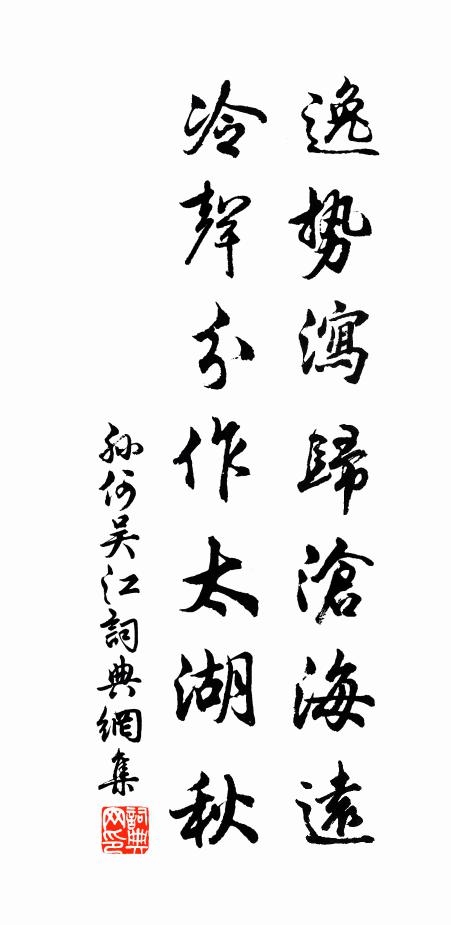 逸勢瀉歸滄海遠
冷聲分作太湖秋
孫何吳江詞典網集
詞典網印